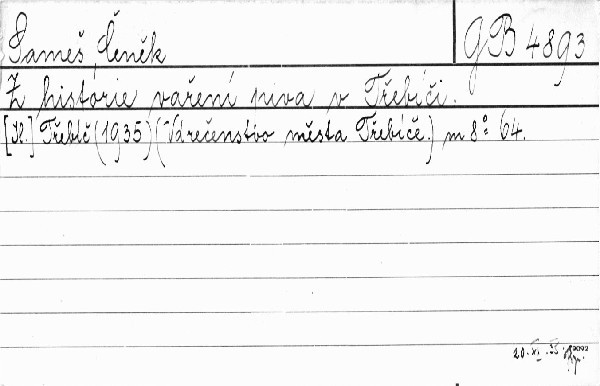 Sameš Čeněk
GB 4893
Z histórie vaření piva v Třebíči.
[Il.] Třebíč (1935) (Várečenstvo města Třebíče.) m 8° 64.
20. XI. 55.